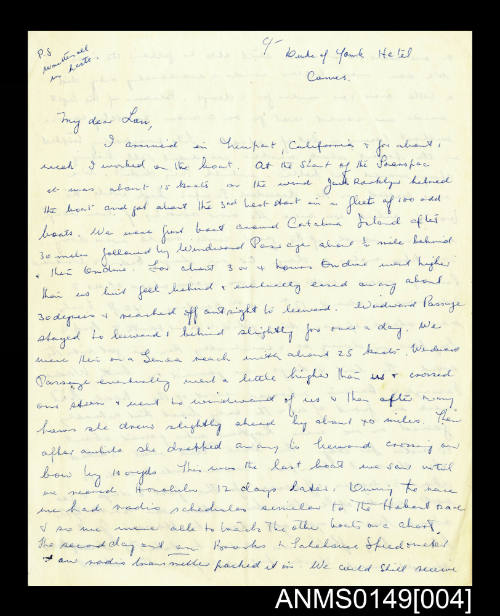 P.S
written all
in haste.
C/- Duke of York Hotel
Cowes.
My dear Lou,
I arrived in Newport, California & for about 1
week I worked on the boat. At the start of the Transpac
it was about 15 knots on the wind Jack Rooklyn helmed
the boat and got about the 3rd best start in a fleet of 100 odd
boats. We were first boat around Catalina Island after
30 miles followed by Windward Passage about ½ mile behind
& then Ondine. For about 3 or 4 hours Ondine went higher
than us but fell behind & eventually eased away about
30 degrees & reached off outright to leeward. Windward Passage
stayed to leeward & behind slightly for over a day. We
were then on a Genoa reach with about 25 knots. Windward
Passage eventually went a little higher than us & crossed
our stern & went to windward of us & then after many
hours she drew slightly ahead by about 40 miles. Then
after awhile she dropped away to leeward crossing our
bow by 100 yds. This was the last boat we saw until
we neared Honolulu 12 days later. During the race
we had radio schedules similar to the Hobart race
& so we were able to track the other boats on a chart.
The second day out our Brooks & Gatehouse Speedometer
& our radio transmitter packed it in. We could still receive
ANMS0149[004]